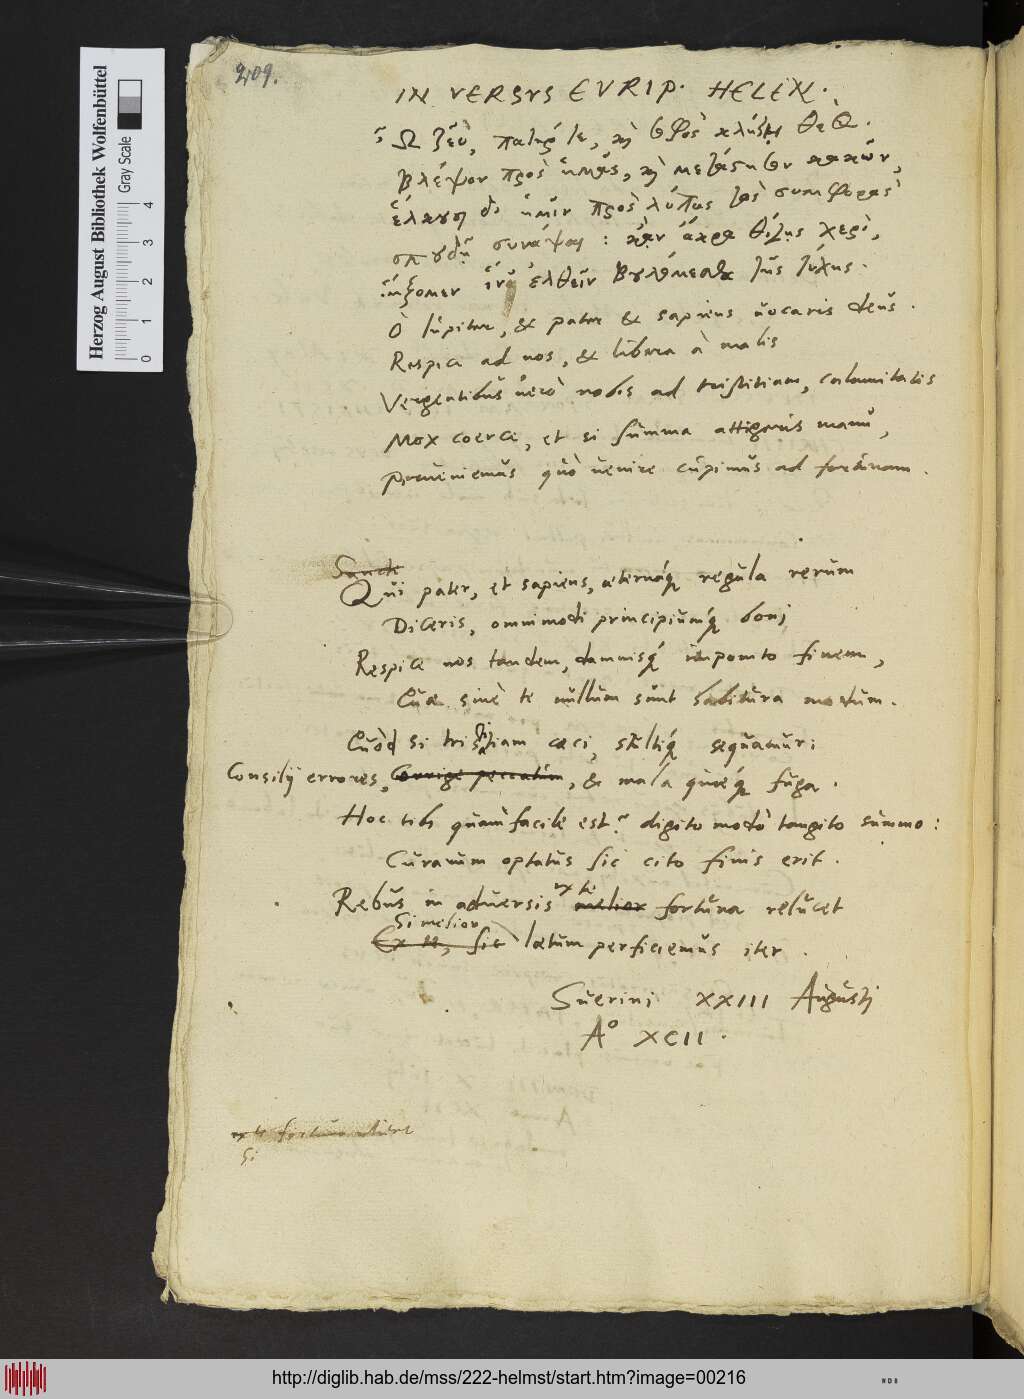 209.
IN VERSVS EURIP. HELEN.
Ὦ Ζεῦ, πατήρ τε, καὶ σοφὸς κλῄζῃ θεὸς.
βλέψον πρὸς ἡμᾶς, καὶ μετάστησον κακῶν,
ἕλκουσι δ᾽ ἡμῖν πρὸς λύπας τὰς συμφορὰς
σπουδῇ σύναψαι: κἂν ἄκρᾳ θίγῃς χερὶ,
ἥξομεν ἵν᾽ ἐλθεῖν βουλόμεσθα τῆς τύχης.
O Iupiter, & pater & sapiens uocaris deus.
Respice ad nos, & libera à malis
Vergentibus uerò nobis ad tristitiam, calamitatis
Mox coerce, et si summa attigeris manu,
Perueniemus quò uenire cupimus ad fortunam.
Sancte
Qui pater, et sapiens, æternáq regula rerum
Diceris, omnimodi principiumq́ bonj
Respice nos tandem, damnisq́ imponito finem,
Cuæ sine te nullum sunt habitura modum.
Cuòd si tristitiam cæci, stultiq́ sequamur:
Consilij errores, Corrige peccatum, & mala quæq́ fuga.
Hoc tibi quàm facile est? digito modò tangito summo:
Curarum optatus sic cito finis erit.
Rebus in aduersis ex te melior fortuna relucet
Si melior
Ex te, sic lætum perficiemus iter.
Suerini XXIII Augustj
Aº XCII.
ex te fortuna
Si
Herzog August Bibliothek Wolfenbüttel
Gray Scale
0 1 2 3 4
http://diglib.hab.de/mss/222-helmst/start.htm?image=00216